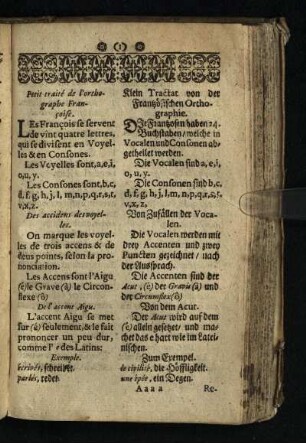 (1)
Petit traité de l'ortho-
graphe Fran-
çoise.
LEs François se servent
de vint quatre lettres,
qui se divisent en Voyel-
les & en Consones.
Les Voyelles sont, a, e, i,
o, u, y.
Les Consones sont, b, c,
d, f, g, h, j, l, m, n, p, q, r, s, t,
v, x, z.
Des accidens des voyel-
les.
On marque les voyel-
les de trois accens & de
deus points, selon la pro-
nonciation.
Les Accens sont l'Aigu
(é) le Grave (à) le Circon-
flexe (ô)
De l'accent Aigu.
L'accent Aigu se met
sur (é) seulement, & le fait
prononcer un peu dur,
comme l'e des Latins:
Exemple.
écrivés, schreibet
parlés, redet
Klein Tractat von der
Französischen Ortho-
graphie.
DIe Franzosen haben 24.
Buchstaben / welche in
Vocalen und Consonen ab-
getheilet werden.
Die Vocalen sind a, e, i,
o, u, y.
Die Consonen sind b, c,
d, f, g, h, j, l, m, n, p, q, r, s, t,
v, x, z.
Von Zufällen der Voca-
len.
Die Vocalen werden mit
drey Accenten und zwey
Puncten gezeichnet / nach
der Aussprach.
Die Accenten sind der
Acut, (é) der Gravis (à) und
der Circumflex (ô)
Von dem Acut.
Der Acut wird auf dem
(é) allein gesetzet / und ma-
chet das e hart wie im Latei-
nischen.
Zum Exempel.
la civilité, die Höffligkeit.
une épée, ein Degen.
Aaaa
Re-